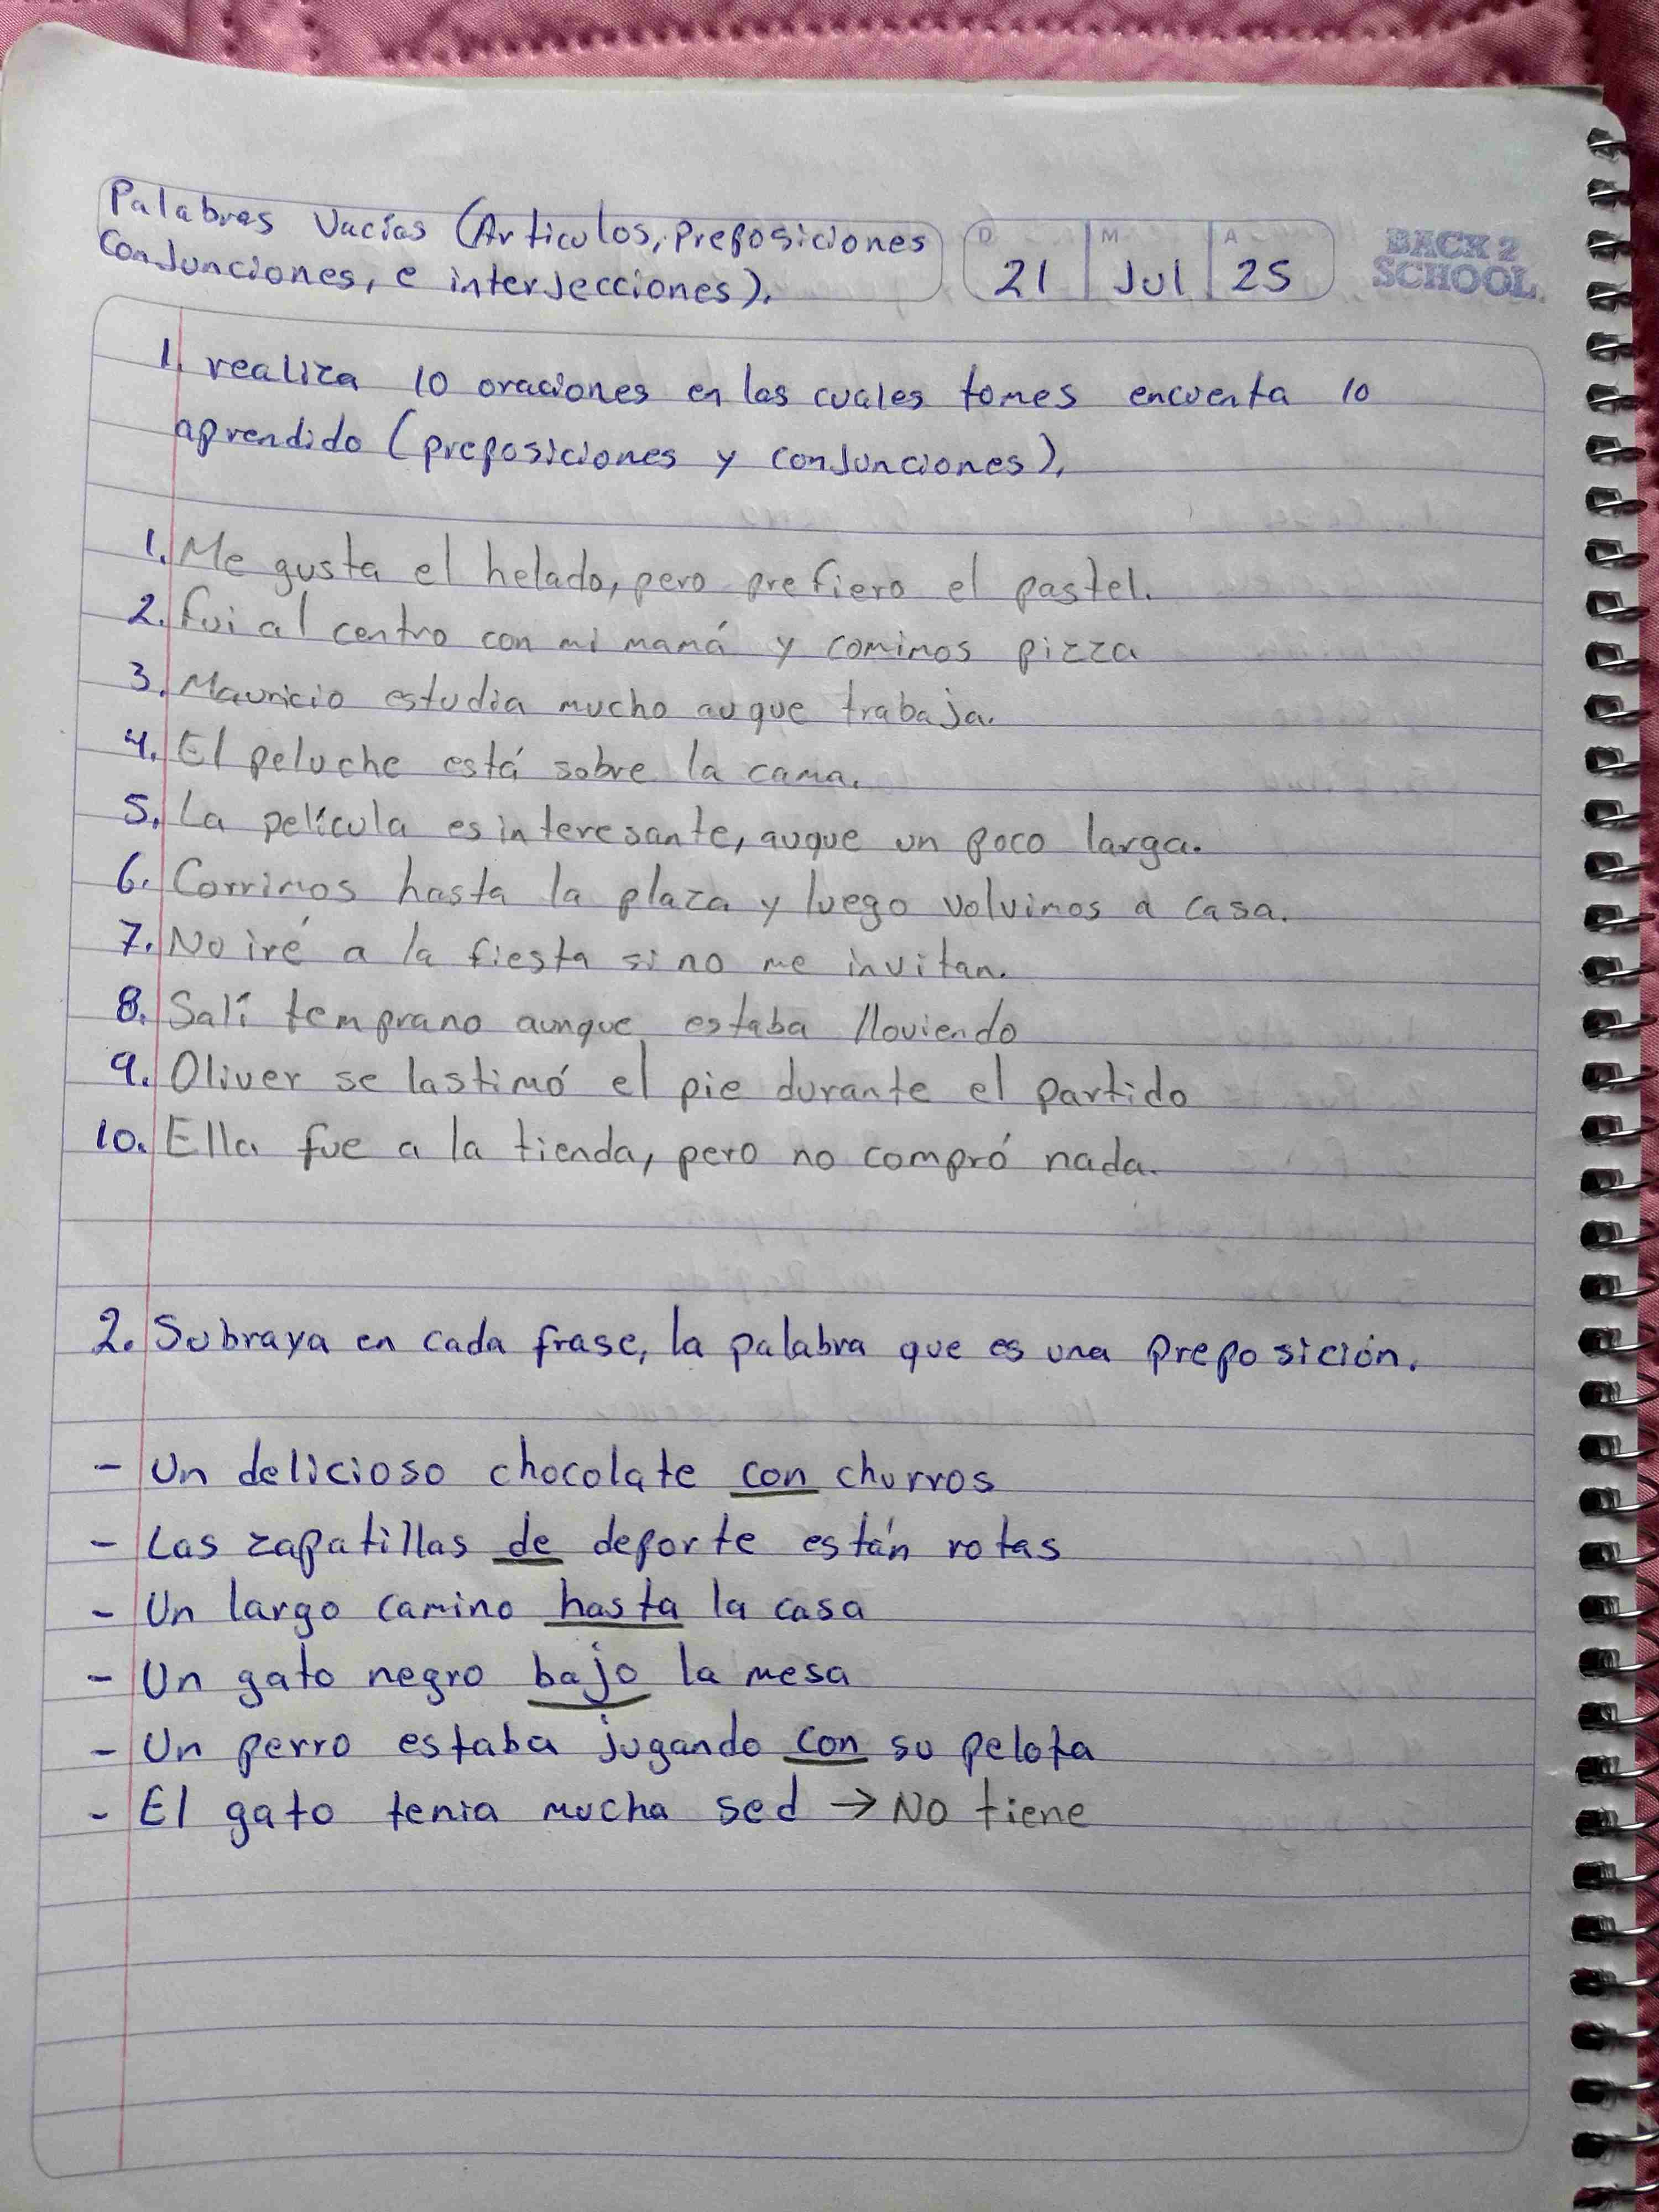 Palabras Vacías (Articulos, Preposiciones
Conjunciones, e interjecciones).
D M A
21 Jul 25
BACK 2
SCHOOL
1. realiza 10 oraciones en las cuales tomes encuenta lo
aprendido (preposiciones y conjunciones).
1. Me gusta el helado, pero prefiero el pastel.
2. Fui al centro con mi mamá y comimos pizza
3. Mauricio estudia mucho auque trabaja.
4. El peluche está sobre la cama.
5. La película es interesante, auque un poco larga.
6. Corrimos hasta la plaza y luego volvimos a casa.
7. No iré a la fiesta si no me invitan.
8. Salí temprano aunque estaba lloviendo
9. Oliver se lastimó el pie durante el partido
10. Ella fue a la tienda, pero no compró nada.
2. Subraya en cada frase, la palabra que es una preposición.
- Un delicioso chocolate con churros
- Las zapatillas de deporte están rotas
- Un largo camino hasta la casa
- Un gato negro bajo la mesa
- Un perro estaba jugando con su pelota
- El gato tenia mucha sed → No tiene